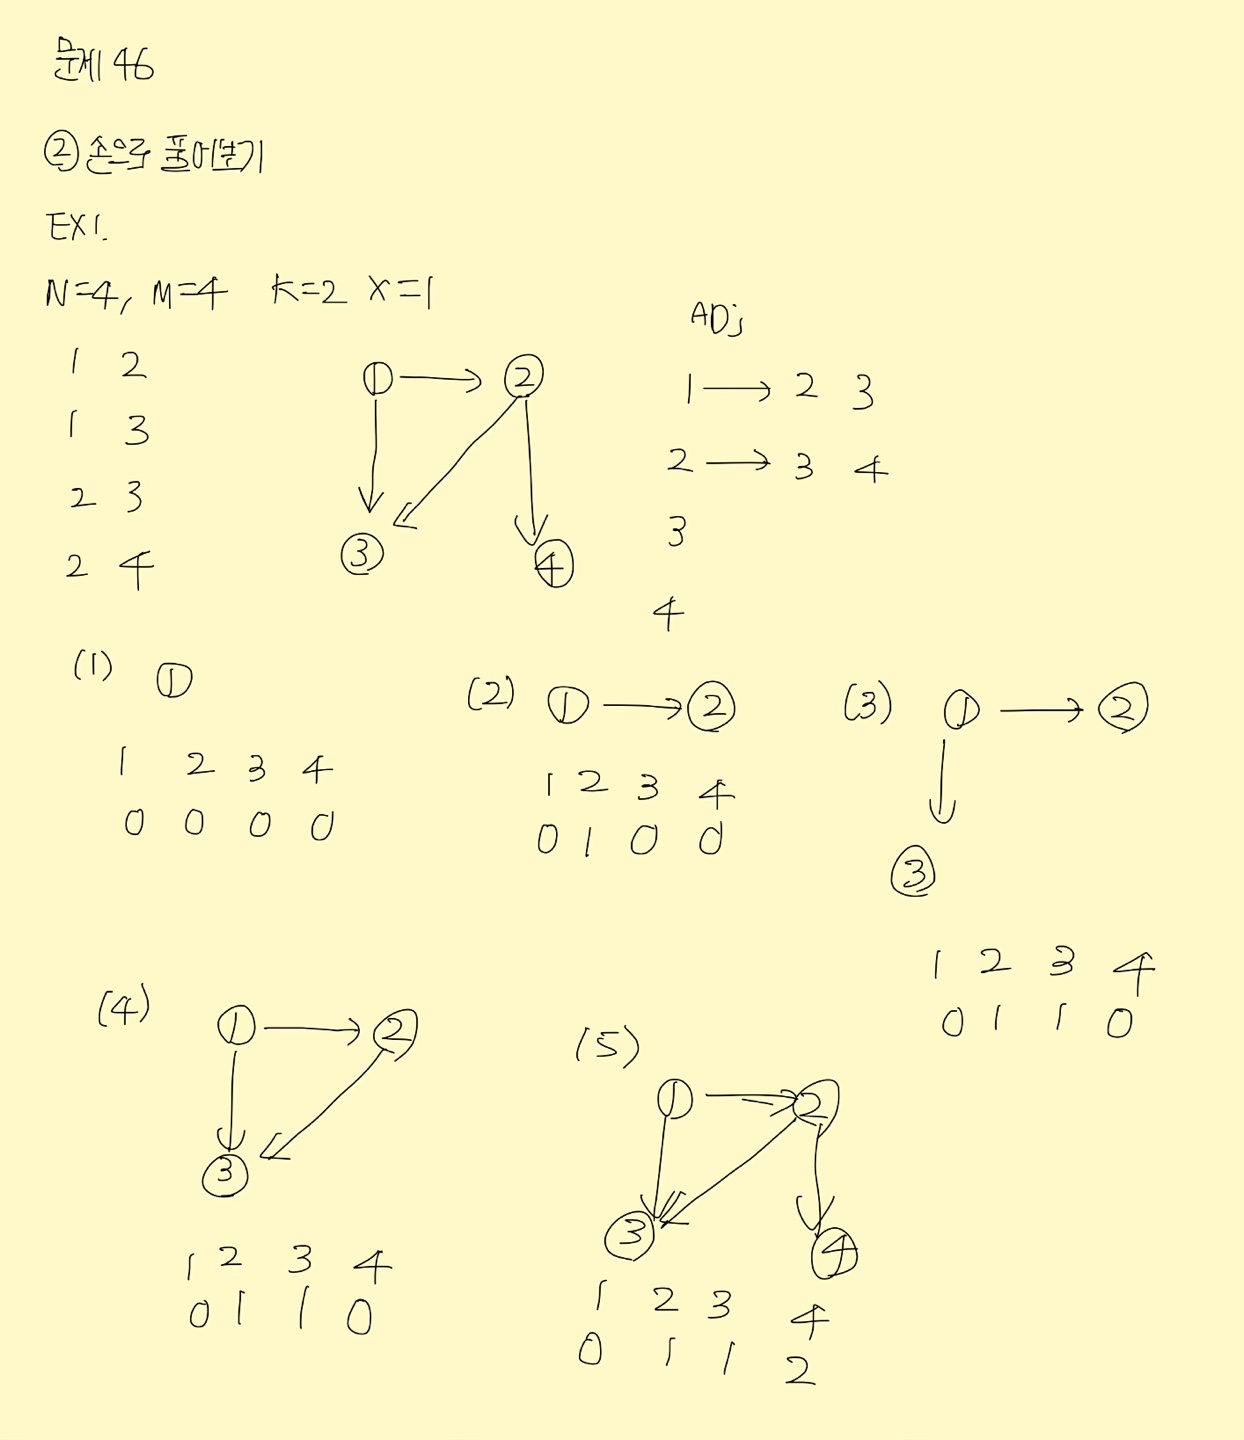 문제 46
② 손으로 풀어보기
EX1.
N=4, M=4 K=2 X=1
1 2
1 3
2 3
2 4
① → ②
③ ④
ADj
1 → 2 3
2 → 3 4
3
4
(1) ①
1 2 3 4
0 0 0 0
(2) ① → ②
1 2 3 4
0 1 0 0
(3) ① → ②
③
1 2 3 4
0 1 1 0
(4) ① → ②
③
1 2 3 4
0 1 1 0
(5)
① → ②
③ ④
1 2 3 4
0 1 1 2